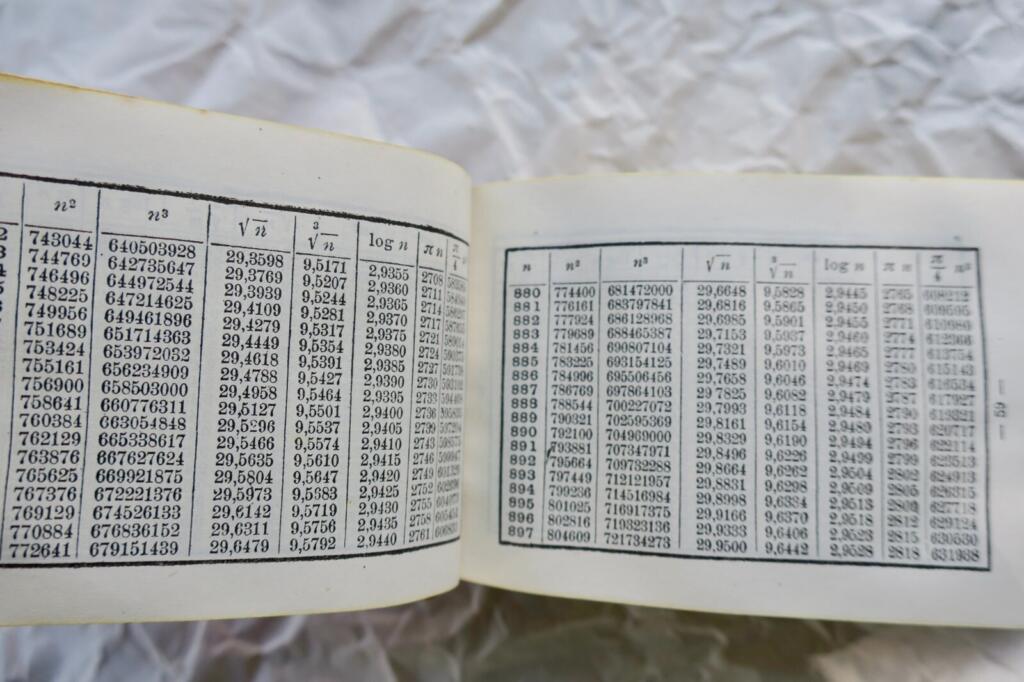 n² n³ √n ³√n log n π n π/4
743044 640503928 29,3598 9,5171 2,9355 2708
744769 642735647 29,3769 9,5207 2,9360 2711
746496 644972544 29,3939 9,5244 2,9365 2714
748225 647214625 29,4109 9,5281 2,9370 2717
749956 649461896 29,4279 9,5317 2,9375 2721
751689 651714363 29,4449 9,5354 2,9380 2724
753424 653972032 29,4618 9,5391 2,9385 2727
755161 656234909 29,4788 9,5427 2,9390 2730
756900 658503000 29,4958 9,5464 2,9395 2733
758641 660776311 29,5127 9,5501 2,9400 2736
760384 663054848 29,5296 9,5537 2,9405 2799
762129 665338617 29,5466 9,5574 2,9410 2743
763876 667627624 29,5635 9,5610 2,9415 2746
765625 669921875 29,5804 9,5647 2,9420 2749
767376 672221376 29,5973 9,5683 2,9425 2752
769129 674526133 29,6142 9,5719 2,9430 2755
770884 676836152 29,6311 9,5756 2,9435 2758
772641 679151439 29,6479 9,5792 2,9440 2761
n n² n³ √n ³√n log n π n π/4 n²
880 774400 681472000 29,6648 9,5828 2,9445 2765 608212
881 776161 683797841 29,6816 9,5865 2,9450 2768 609595
882 777924 686128968 29,6985 9,5901 2,9455 2771 610980
883 779689 688465387 29,7153 9,5937 2,9460 2774 612366
884 781456 690807104 29,7321 9,5973 2,9465 2777 613754
885 783225 693154125 29,7489 9,6010 2,9469 2780 615143
886 784996 695506456 29,7658 9,6046 2,9474 2783 616534
887 786769 697864103 29,7825 9,6082 2,9479 2787 617927
888 788544 700227072 29,7993 9,6118 2,9484 2790 619321
889 790321 702595369 29,8161 9,6154 2,9489 2793 620717
890 792100 704969000 29,8329 9,6190 2,9494 2796 622114
891 793881 707347971 29,8496 9,6226 2,9499 2799 623513
892 795664 709732288 29,8664 9,6262 2,9504 2802 624913
893 797449 712121957 29,8831 9,6298 2,9509 2805 626315
894 799236 714516984 29,8998 9,6334 2,9513 2809 627718
895 801025 716917375 29,9166 9,6370 2,9518 2812 629124
896 802816 719323136 29,9333 9,6406 2,9523 2815 630530
897 804609 721734273 29,9500 9,6442 2,9528 2818 631938